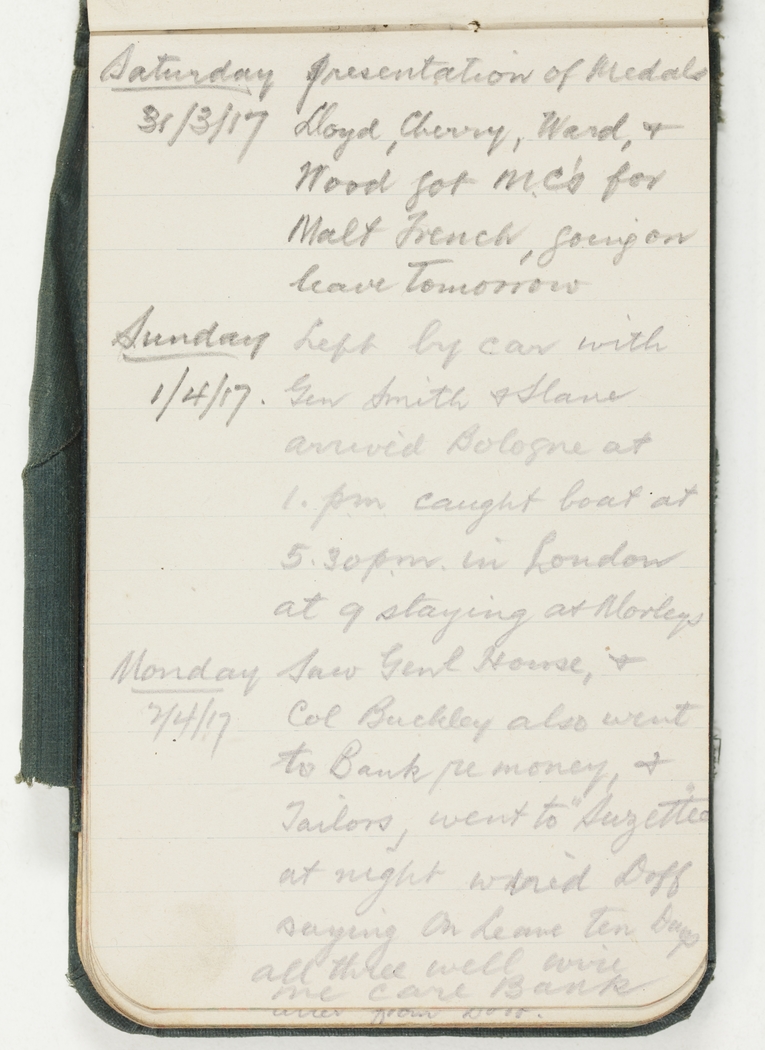 Saturday Presentation of Medals
31/3/17 Lloyd, Cherry, Ward, &
Wood got M.C's for
Malt French, going on
leave tomorrow
Sunday Left by car with
1/4/17. Gen Smith & Slane
arrived Bologne at
1. pm caught boat at
5.30pm. in London
at 9 staying at Morleys
Monday Saw Genl House, &
2/4/17 Col Buckley also went
to Bank re money, &
Tailors, went to "Suzette"
at night wired Doff
saying On Leave ten Days
all three well wire
me care Bank
from Doff.